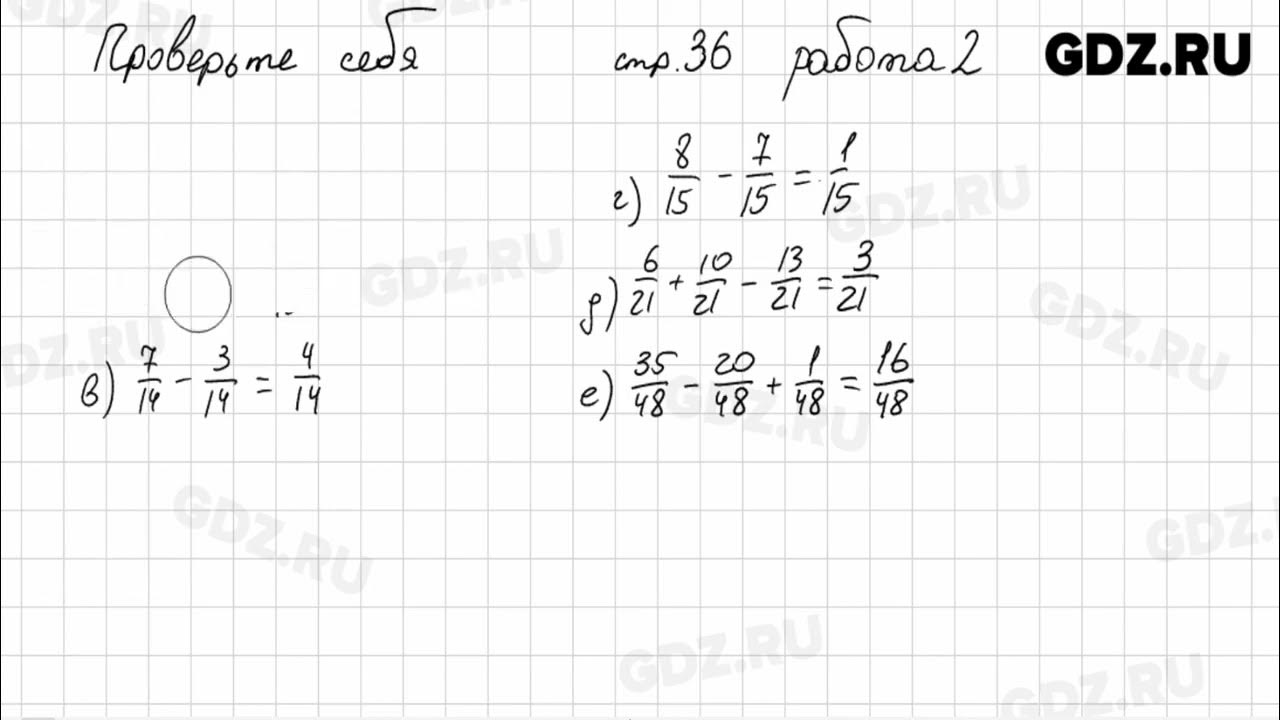 Проверьте себя стр. 36 работа 2 GDZ.RU
г) 8/15 - 7/15 = 1/15
д) 6/21 + 10/21 - 13/21 = 3/21
в) 7/14 - 3/14 = 4/14
е) 35/48 - 20/48 + 1/48 = 16/48
GDZ.RU
GDZ.RU
GDZ.RU
GDZ.RU
GDZ.RU
GDZ.RU
GDZ.RU
GDZ.RU
GDZ.RU
GDZ.RU